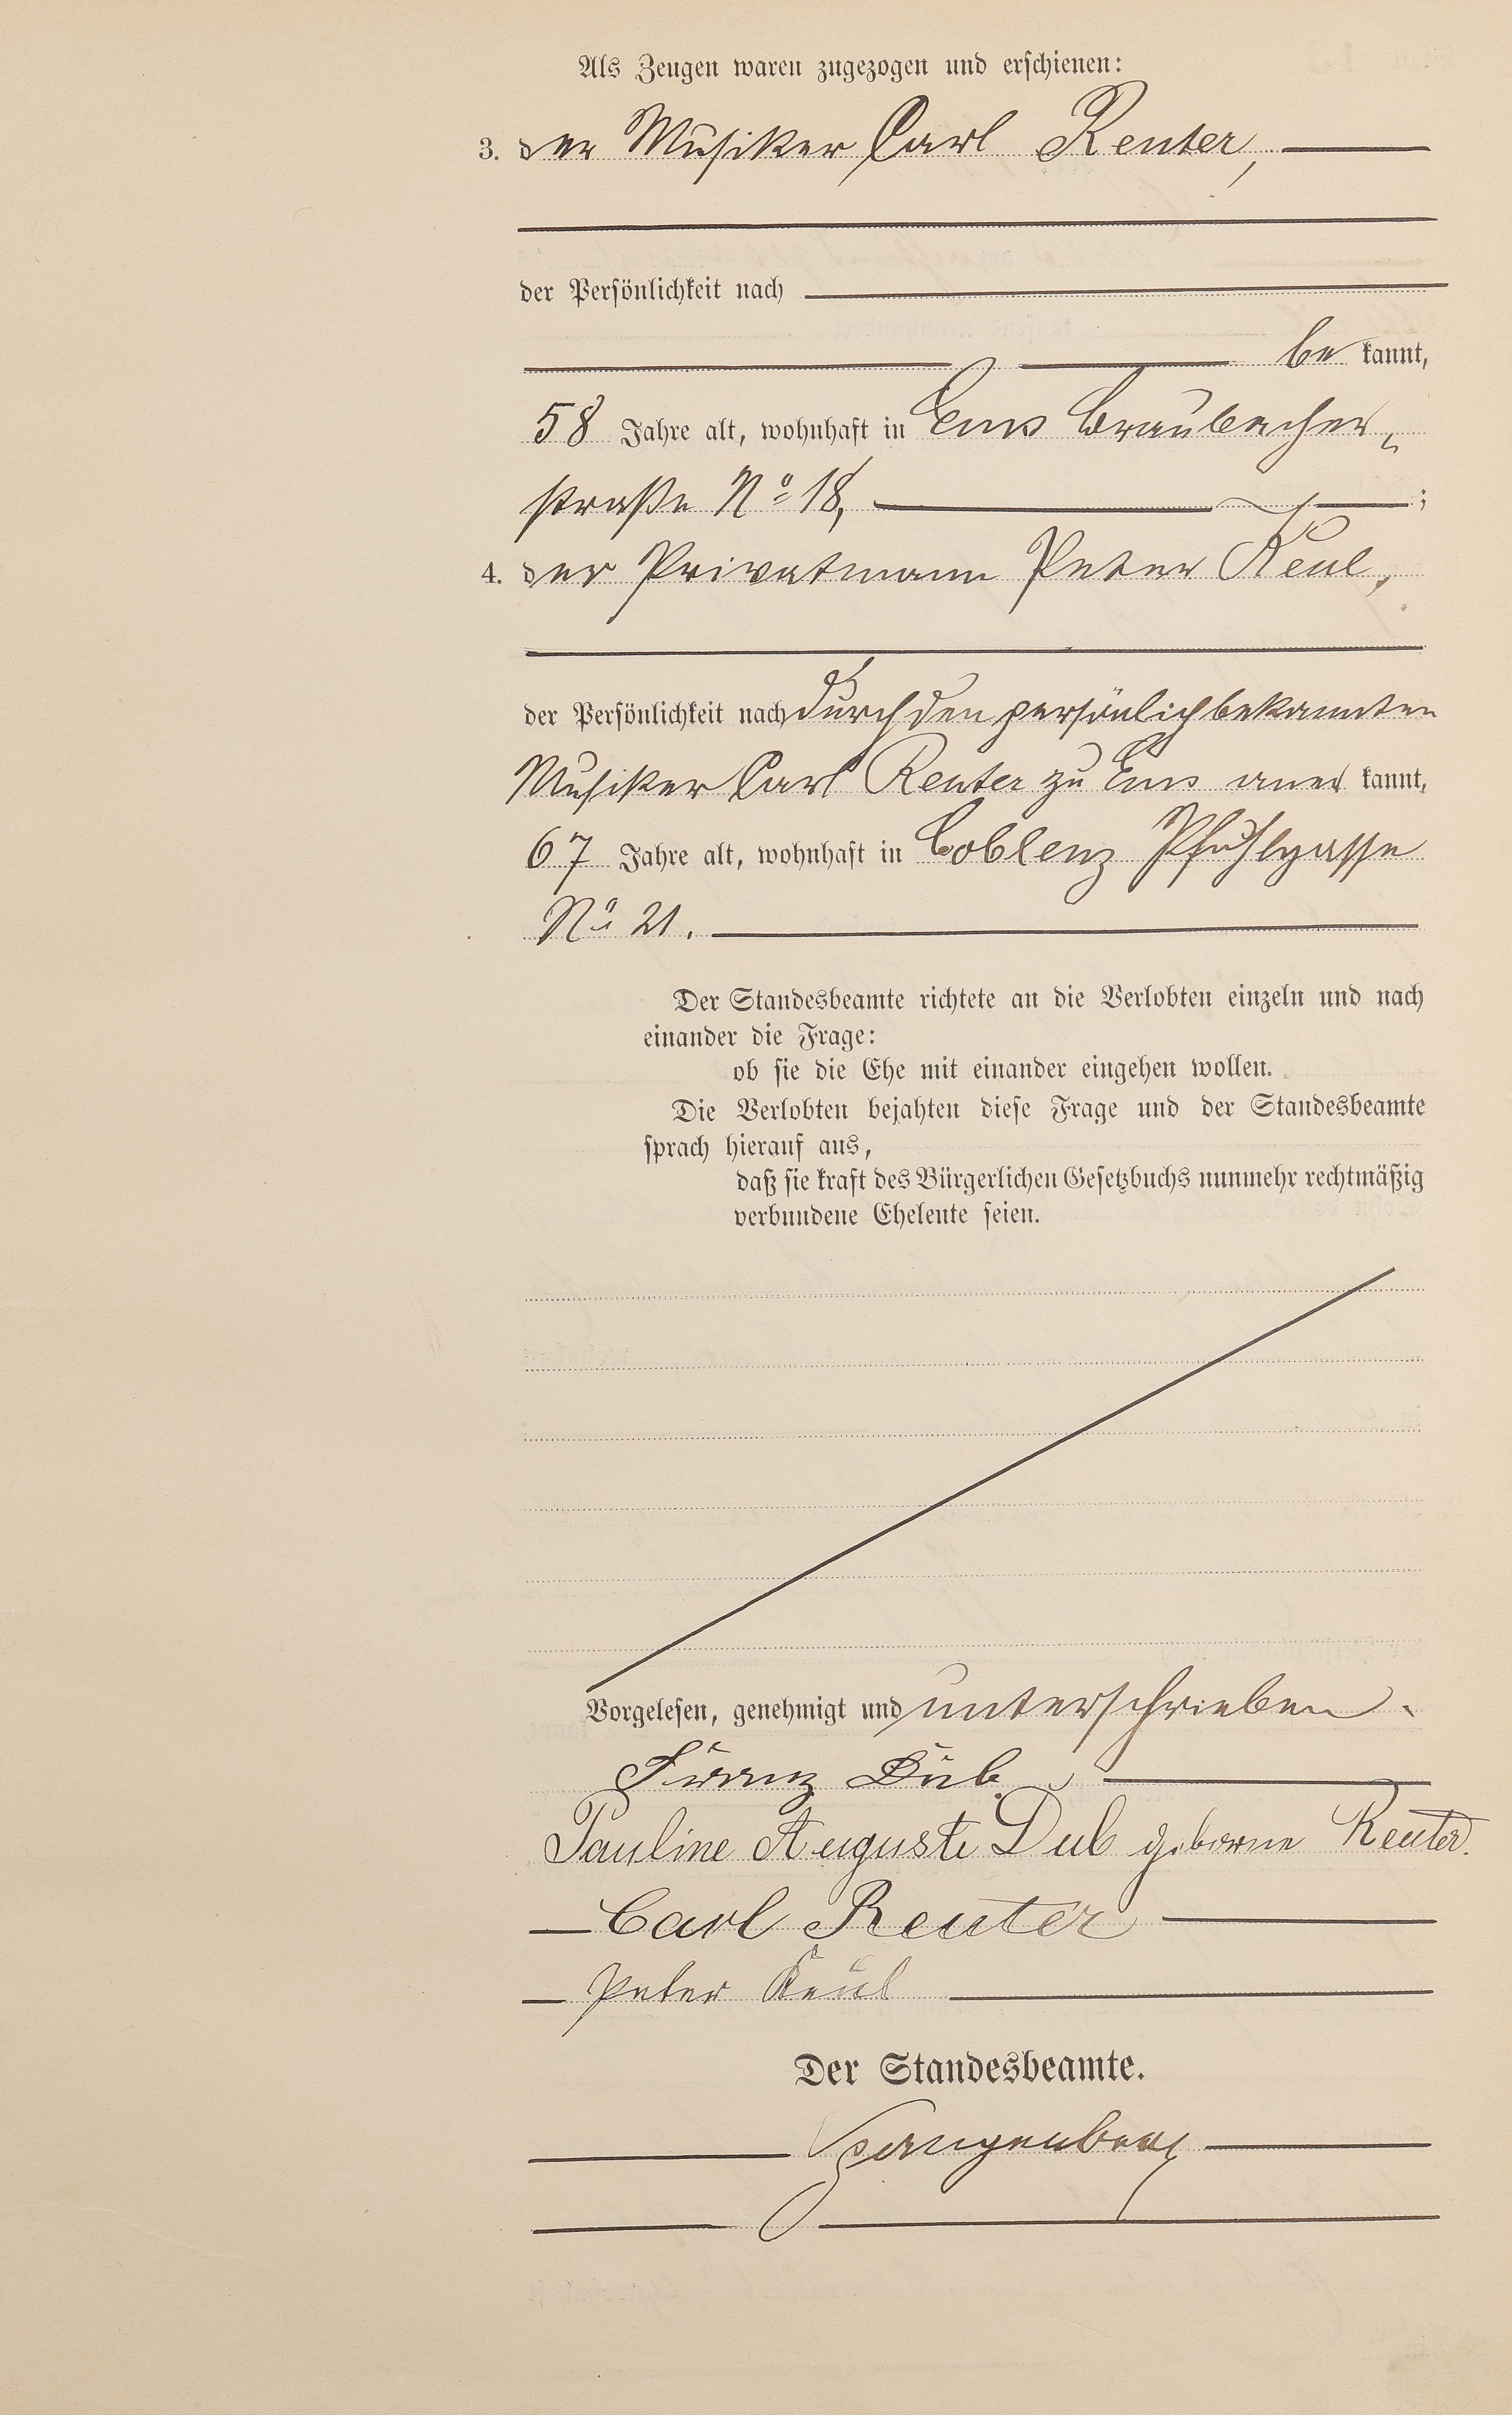 Als Zeugen waren zugezogen und erschienen:
3. der Musiker Carl Reuter,
der Persönlichkeit nach
be kannt,
58 Jahre alt, wohnhaft in Ems Braubacher-
straße No 18, ;
4. der Privatmann Peter Keul,
der Persönlichkeit nach durch den persönlich bekannten
Musiker Carl Reuter zu Ems aner kannt,
67 Jahre alt, wohnhaft in Coblenz Pfuhlgasse
No 21.
Der Standesbeamte richtete an die Verlobten einzeln und nach
einander die Frage:
ob sie die Ehe mit einander eingehen wollen.
Die Verlobten bejahten diese Frage und der Standesbeamte
sprach hierauf aus,
daß sie kraft des Bürgerlichen Gesetzbuchs nunmehr rechtmäßig
verbundene Eheleute seien.
Vorgelesen, genehmigt und unterschrieben.
Franz Dub
Pauline Auguste Dub geborne Reuter.
Carl Reuter
Peter Keul
Der Standesbeamte.
Spangenberg